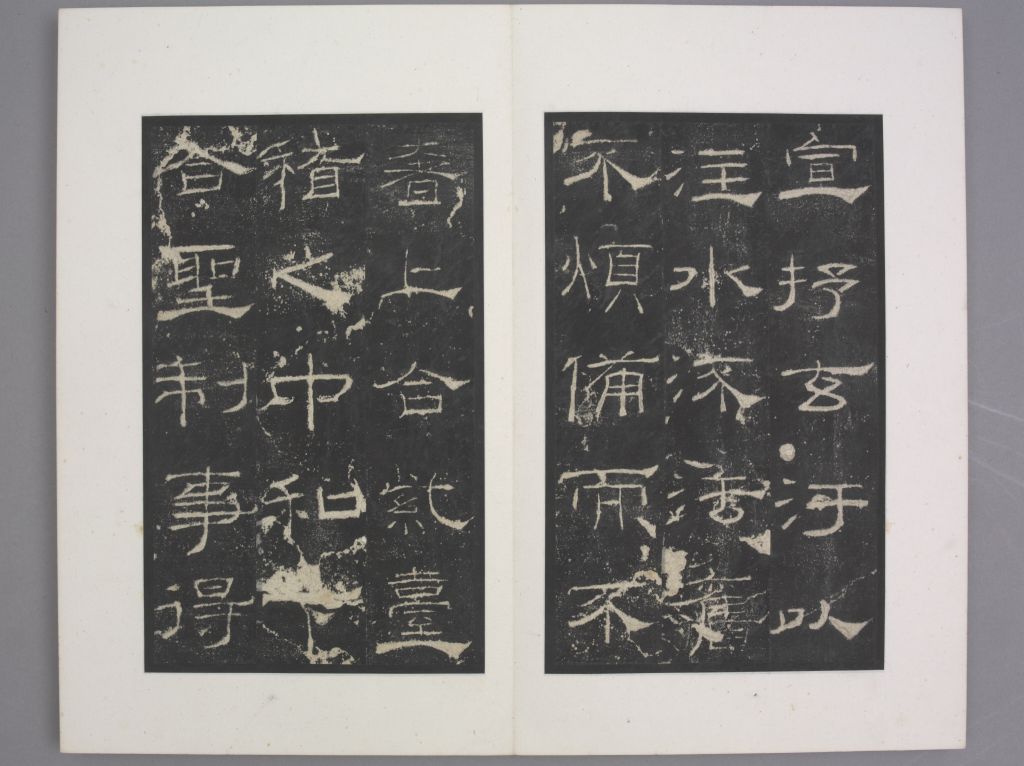 宣抒玄汙以
注水流法舊
不煩備而不
奢上合紫臺
稽之中和下
合聖制事得